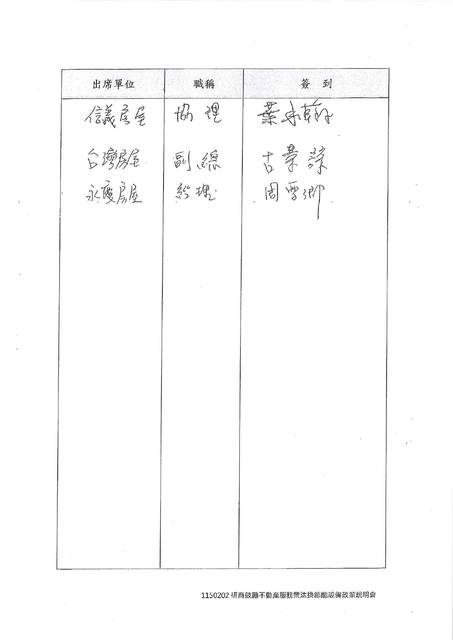 出席單位 職稱 簽到
信義房屋 協理 葉
台灣房屋 副總 古
永慶房屋 經理 周雪卿
1150202 研商鼓勵不動產服務業汰換節能設備政策說明會